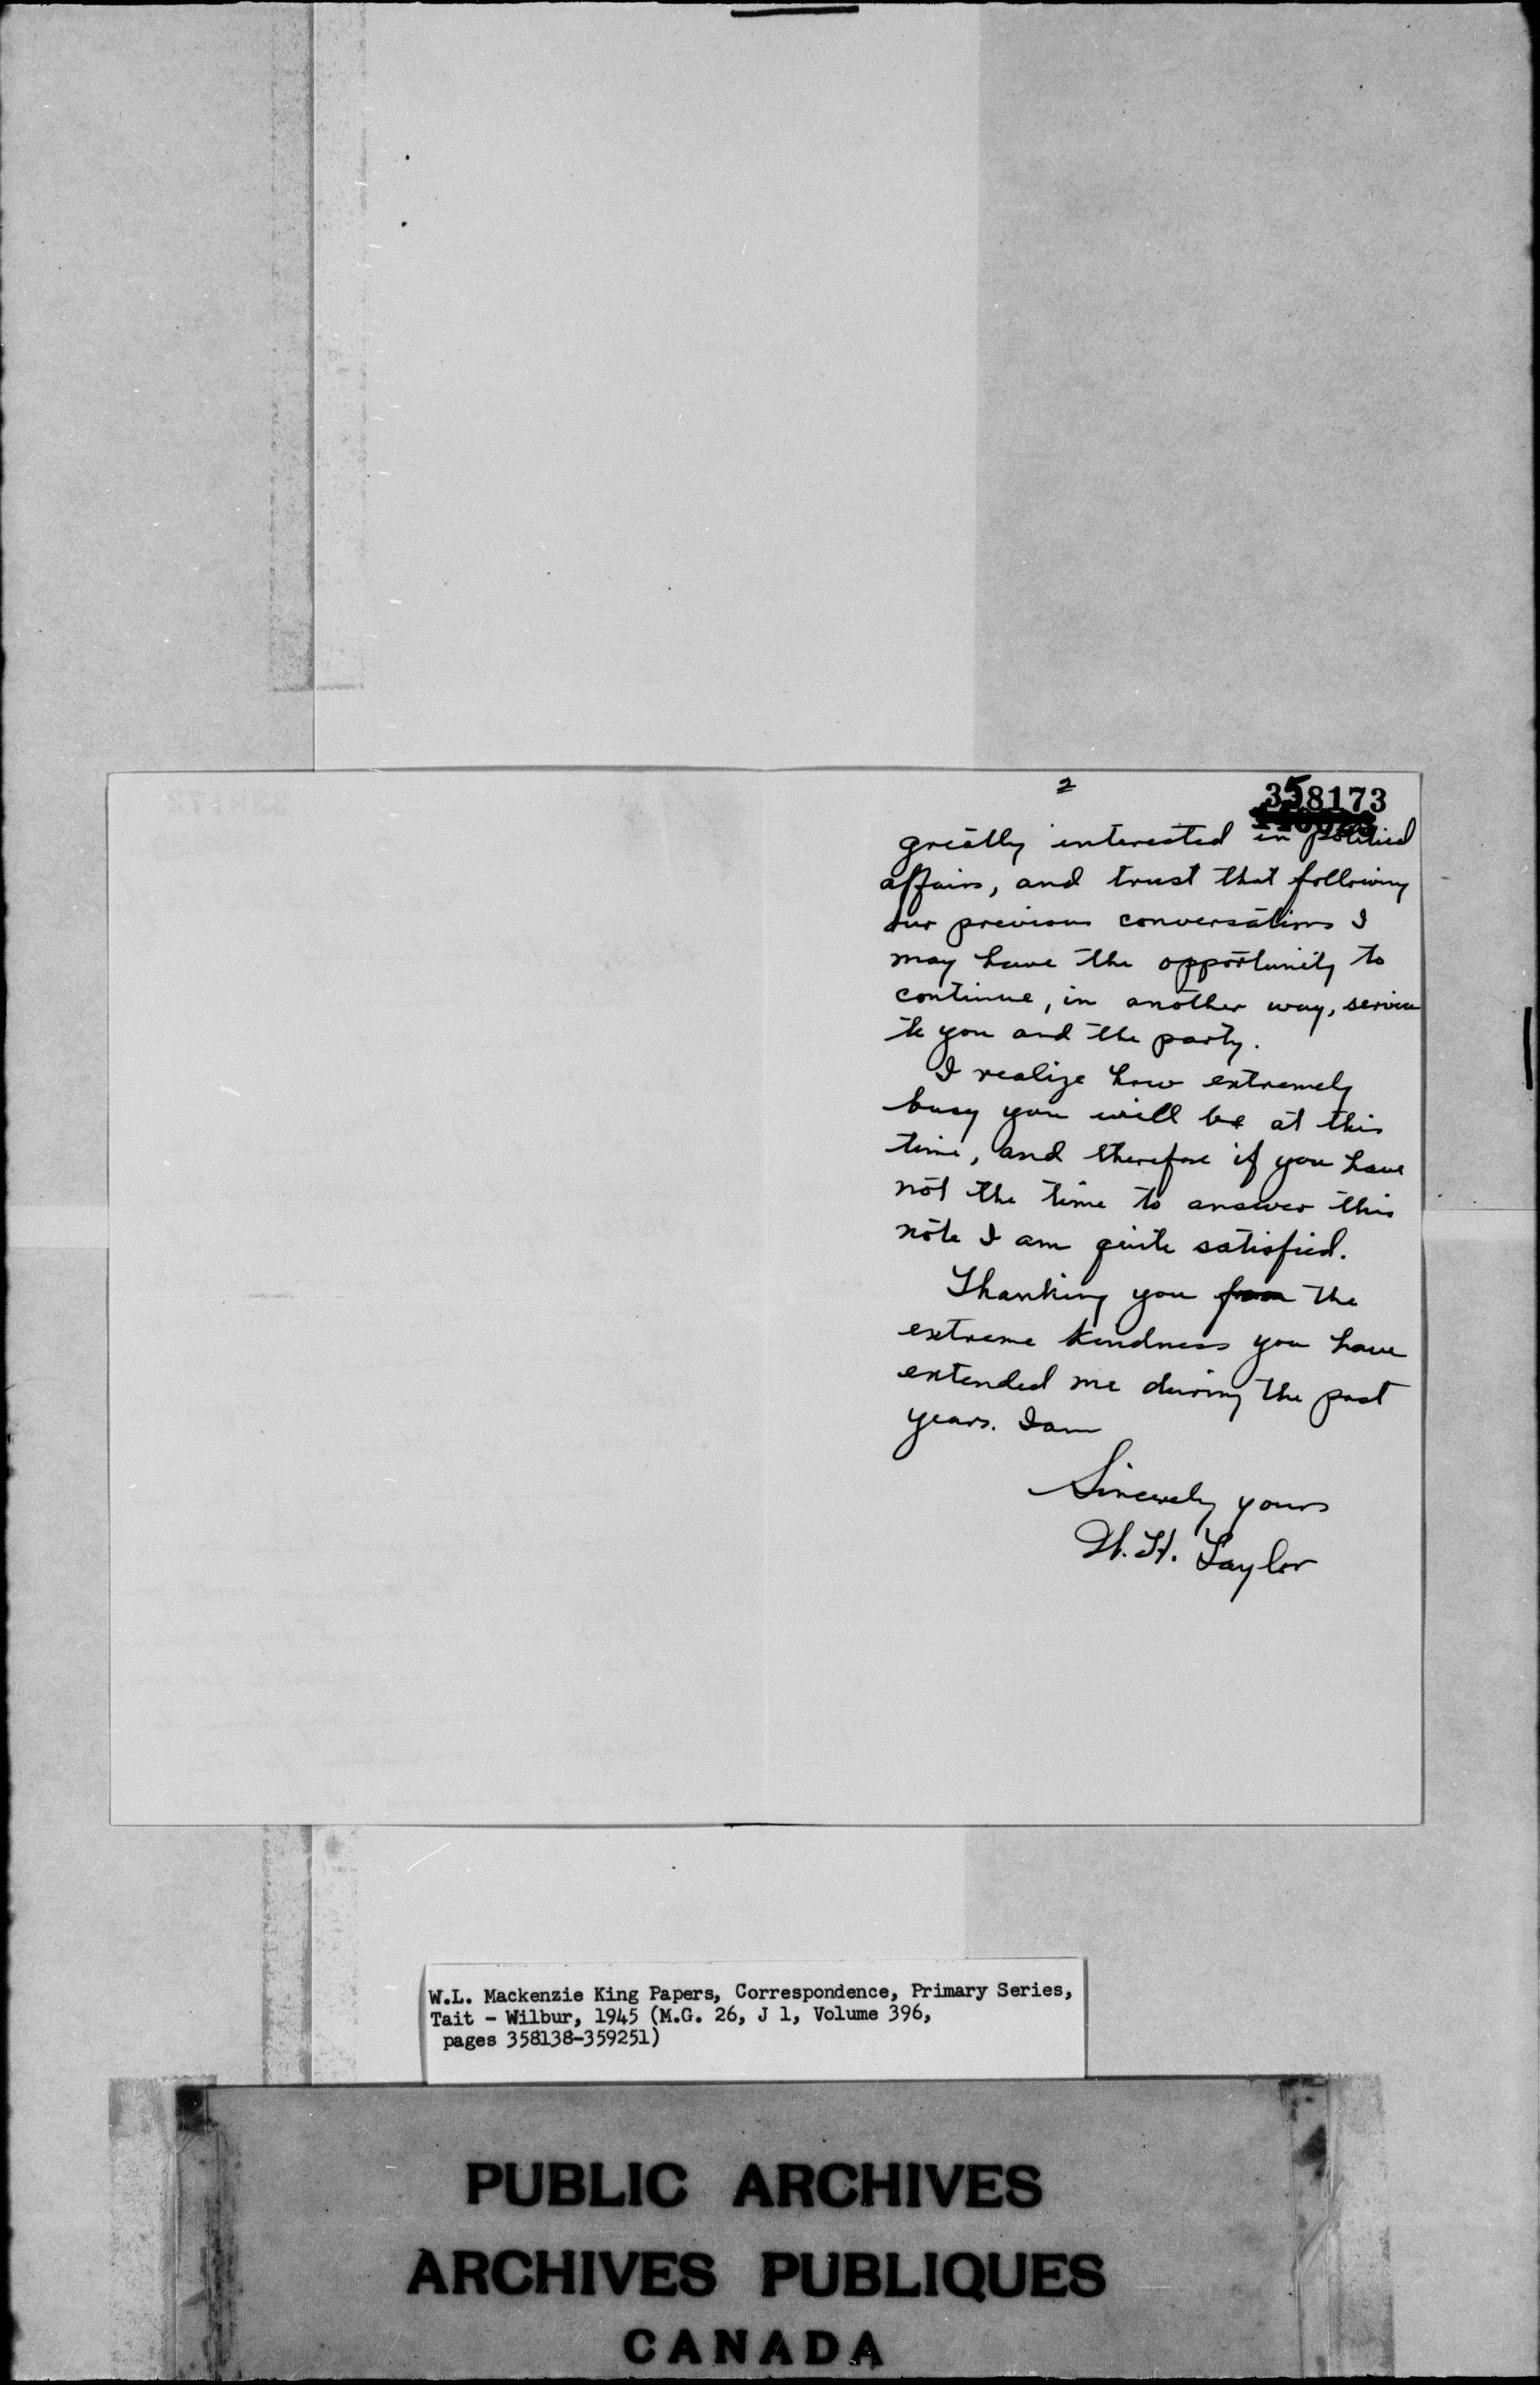 2
358173
greatly interested in political
affairs, and trust that following
our previous conversations I
may have the opportunity to
continue, in another way, service
to you and the party.
I realize how extremely
busy you will be at this
time, and therefore if you have
not the time to answer this
note I am quite satisfied.
Thanking you from the
extreme kindness you have
extended me during the past
years. I am
Sincerely yours
W. H. Taylor
W.L. Mackenzie King Papers, Correspondence, Primary Series,
Tait - Wilbur, 1945 (M.G. 26, J 1, Volume 396,
pages 358138-359251)
PUBLIC ARCHIVES
ARCHIVES PUBLIQUES
CANADA